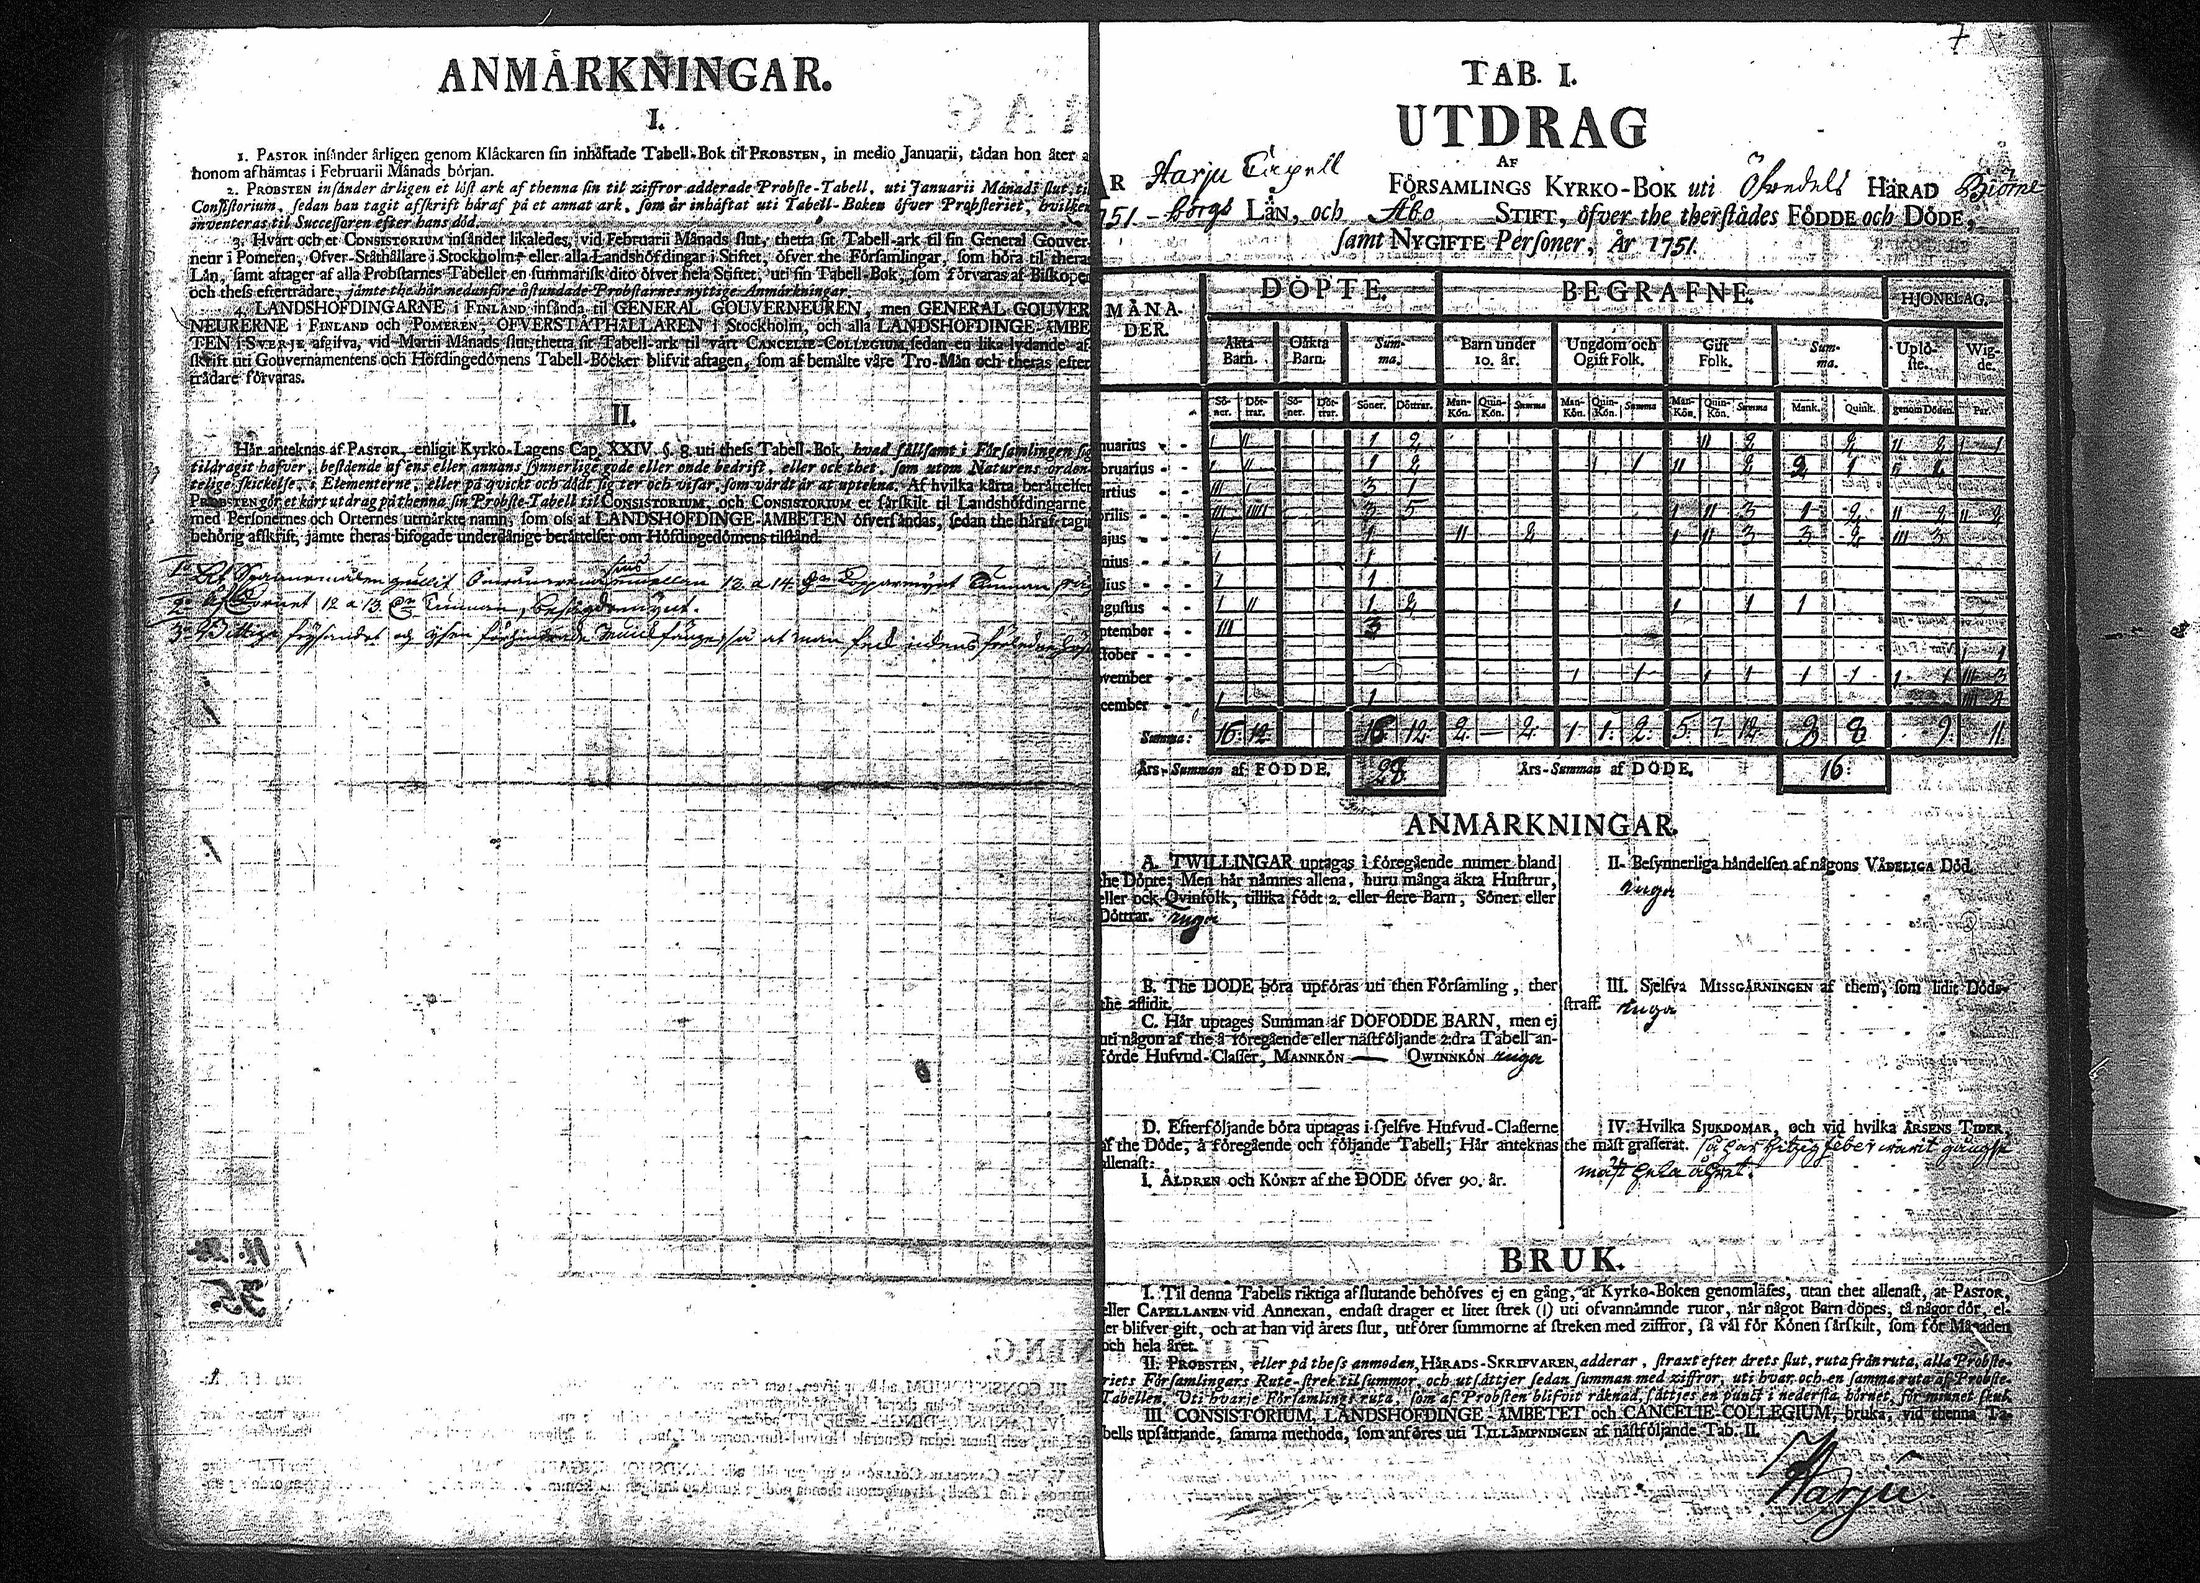 ANMÄRKNINGAR.
I.
1. PASTOR insänder årligen genom Klåckaren sin inhäftade Tabell-Bok til PROBSTEN, in medio Januarii, tådan hon åter a
honom afhämtas i Februarii Månads början.
2. PROBSTEN insänder årligen et löst ark af thenna sin til ziffror adderade Probste-Tabell, uti Januarii Månads slut, til
Consistorium, sedan han tagit afskrift häraf på et annat ark, som är inhäftat uti Tabell-Boken öfver Probsteriet, hvilken
inventeras til Successoren efter hans död.
3. Hvart och et CONSISTORIUM insänder likaledes, vid Februarii Månads slut, thetta sit Tabell-ark til sin General Gouver-
neur i Pomeren, Öfver-Ståthållare i Stockholm, eller alla Landshöfdingar i Stiftet, öfver the Församlingar, som höra til theras
Län, samt aftager af alla Probstarnes Tabeller en summarisk dito öfver hela Stiftet, uti sin Tabell-Bok, som förvaras af Biskopen
och thess efterträdare, jämte the här nedanföre åstundade Probstarnes nyttige Anmärkningar.
4. LANDSHÖFDINGARNE i FINLAND insända til GENERAL GOUVERNEUREN, men GENERAL GOUVER
NEURERNE i FINLAND och POMEREN, ÖFVERSTÅTHÅLLAREN i Stockholm, och alla LANDSHÖFDINGE-ÄMBE
TEN i SVERJE afgifva, vid Martii Månads slut, thetta sit Tabell-ark til vårt CANCELIE-COLLEGIUM, sedan en lika lydande af
skrift uti Gouvernamentens och Höfdingedömens Tabell-Böcker blifvit aftagen, som af bemälte våre Tro-Män och theras efter
trädare förvaras.
II.
Här anteknas af PASTOR, enligit Kyrko-Lagens Cap. XXIV. §. 8. uti thess Tabell-Bok, hvad sällsamt i Församlingen sig
tildragit hafver, bestående af ens eller annans synnerlige gode eller onde bedrift, eller ock thet, som utom Naturens orden-
telige skickelse, i Elementerne, eller på qvickt och dödt sig ter och visar, som värdt är at uptekna. Af hvilka kårta berättelser
PROBSTEN gör et kårt utdrag på thenna sin Probste-Tabell til CONSISTORIUM, och CONSISTORIUM et särskilt til Landshöfdingarne
med Personernes och Orternes utmärkte namn, som oss af LANDSHÖFDINGE-ÄMBETEN öfversändas, sedan the häraf tagit
behörig afskrift, jämte theras bifogade underdånige berättelser om Höfdingedömens tilstånd.
7
TAB. I.
UTDRAG
AF
ÅR Harju Capell FÖRSAMLINGS KYRKO-BOK uti Öfredels HÄRAD Biörne
751. - borgs LÄN, och Åbo STIFT, öfver the therstädes FÖDDE och DÖDE,
samt NYGIFTE Personer, År 1751.
MÅNA-DER. DÖPTE. BEGRAFNE. HJONELAG.
Äkta Barn. Oäkta Barn. Summa. Barn under 10. år. Ungdom och Ogift Folk. Gift Folk. Summa. Uplöste. Wigde.
Söner. Döttrar. Söner. Döttrar. Söner. Döttrar. Man-Kön. Quin-Kön. Summa Man-Kön. Quin-Kön. Summa Man-Kön. Quin-Kön. Summa Mank. Quink. genom Döden. Par.
nuarius I II 1 2 II 2 2 II 2 I 1
bruarius I II 1 2
artius III I 3 1
prilis III IIIII 3 5 I II 3 1 2 II 2 II 2
ajus 1 II 2 I II 3 3 2 III 3
nius I 1
lius I 1
gustus I II 1 2 I 1 1
ptember III 3
tober I 1
vember I 1 I 1 1 1 I 1 III 3
cember I 1
Summa: 16. 12. 16. 12. 2. — 2. 1 1. 2. 5. 7. 12. 8. 8. 9. 11.
Års-Summan af FÖDDE. 28. Års-Summan af DÖDE. 16:
ANMÄRKNINGAR.
A. TWILLINGAR uptagas i föregående numer bland
the Döpte; Men här nämnes allena, huru många äkta Hustrur,
eller ock Qvinfolk, tillika födt 2. eller flere Barn, Söner eller
Döttrar. inga
B. The DÖDE böra upföras uti then Församling, ther
the aflidit.
C. Här uptages Summan af DÖFÖDDE BARN, men ej
uti någon af the å föregående eller nästföljande 2:dra Tabell an-
förde Hufvud-Classer, MANNKÖN — QWINNKÖN inga
D. Efterföljande böra uptagas i sjelfve Hufvud-Classerne
af the Döde, å föregående och följande Tabell; Här anteknas
allenast:
I. ÅLDREN och KÖNET af the DÖDE öfver 90. år.
II. Besynnerliga händelsen af någons VÅDELIGA Död.
inga
III. Sjelfva MISSGÄRNINGEN af them, som lidit Döds-
straff. inga
IV. Hvilka SJUKDOMAR, och vid hvilka ÅRSENS TIDER,
the mäst grasserat. så har hitzig feber warit gångse
mäst hela åhret.
BRUK.
I. Til denna Tabells riktiga afslutande behöfves ej en gång, at Kyrko-Boken genomläses, utan thet allenast, at PASTOR,
eller CAPELLANEN vid Annexan, endast drager et litet strek (I) uti ofvannämnde rutor, när något Barn döpes, tå någor dör, el-
ler blifver gift, och at han vid årets slut, utförer summorne af streken med ziffror, så väl för Könen särskilt, som för Månaden
och hela året.
II. PROBSTEN, eller på thess anmodan, HÄRADS-SKRIFVAREN, adderar, straxt efter årets slut, ruta från ruta, alla Probste-
riets Församlingars Rute-strek til summor, och utsättjer sedan summan med ziffror, uti hvar och en samma ruta af Probste-
Tabellen. Uti hvarje Församlings ruta, som af Probsten blifvit räknad, sättjes en punct i nedersta hörnet, för minnet skul.
III. CONSISTORIUM, LANDSHÖFDINGE-ÄMBETET och CANCELIE-COLLEGIUM, bruka, vid thenna Ta-
bells upsättjande, samma methode, som anföres uti TILLÄMPNINGEN af nästföljande Tab. II.
Harju